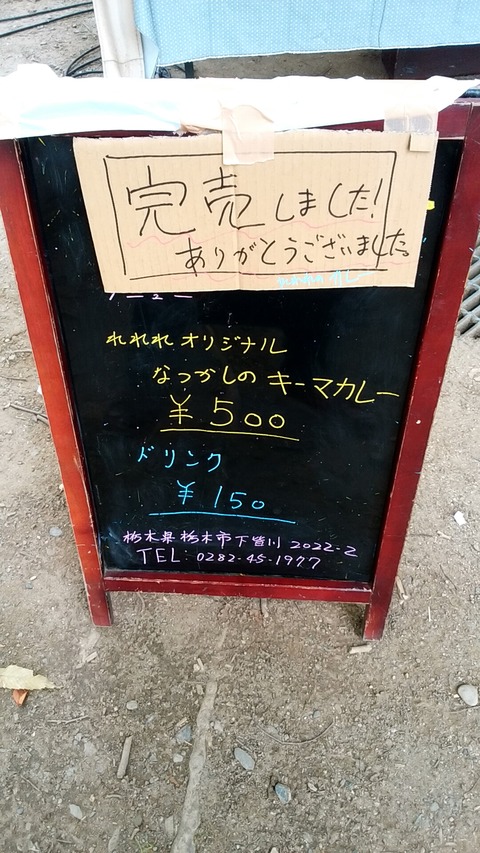 完売しました!
ありがとうございました。
メニュー
れれれオリジナル
なつかしの キーマカレー
¥500
ドリンク
¥150
栃木県栃木市下皆川 2022-2
TEL:0282-45-1977